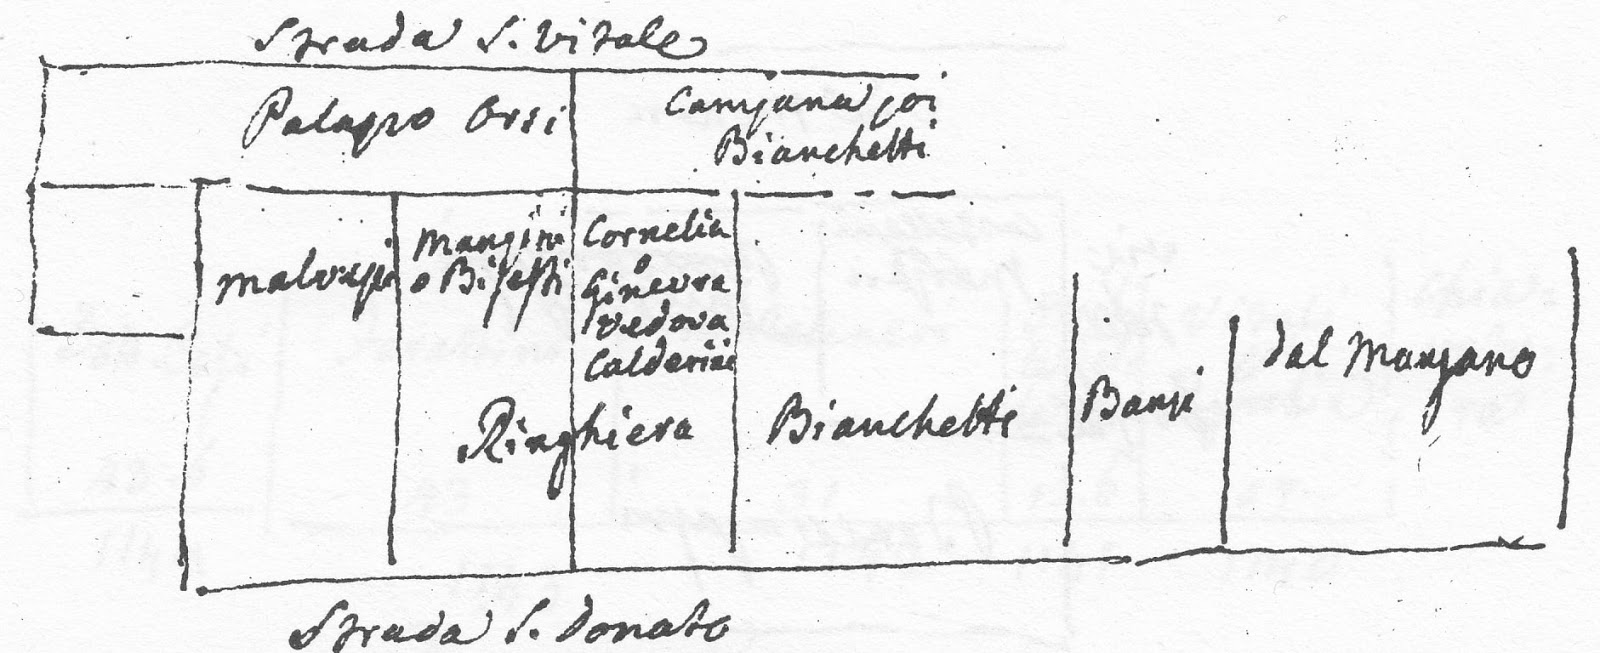 Strada S. Vitale
Palazzo Orsi
Campana poi
Bianchetti
Malvezzi
Mangini
o Bisesti
Cornelia
o
Ginevra
Vedova
Calderini
Ringhiera
Bianchetti
Banzi
dal Manzano
Strada S. Donato